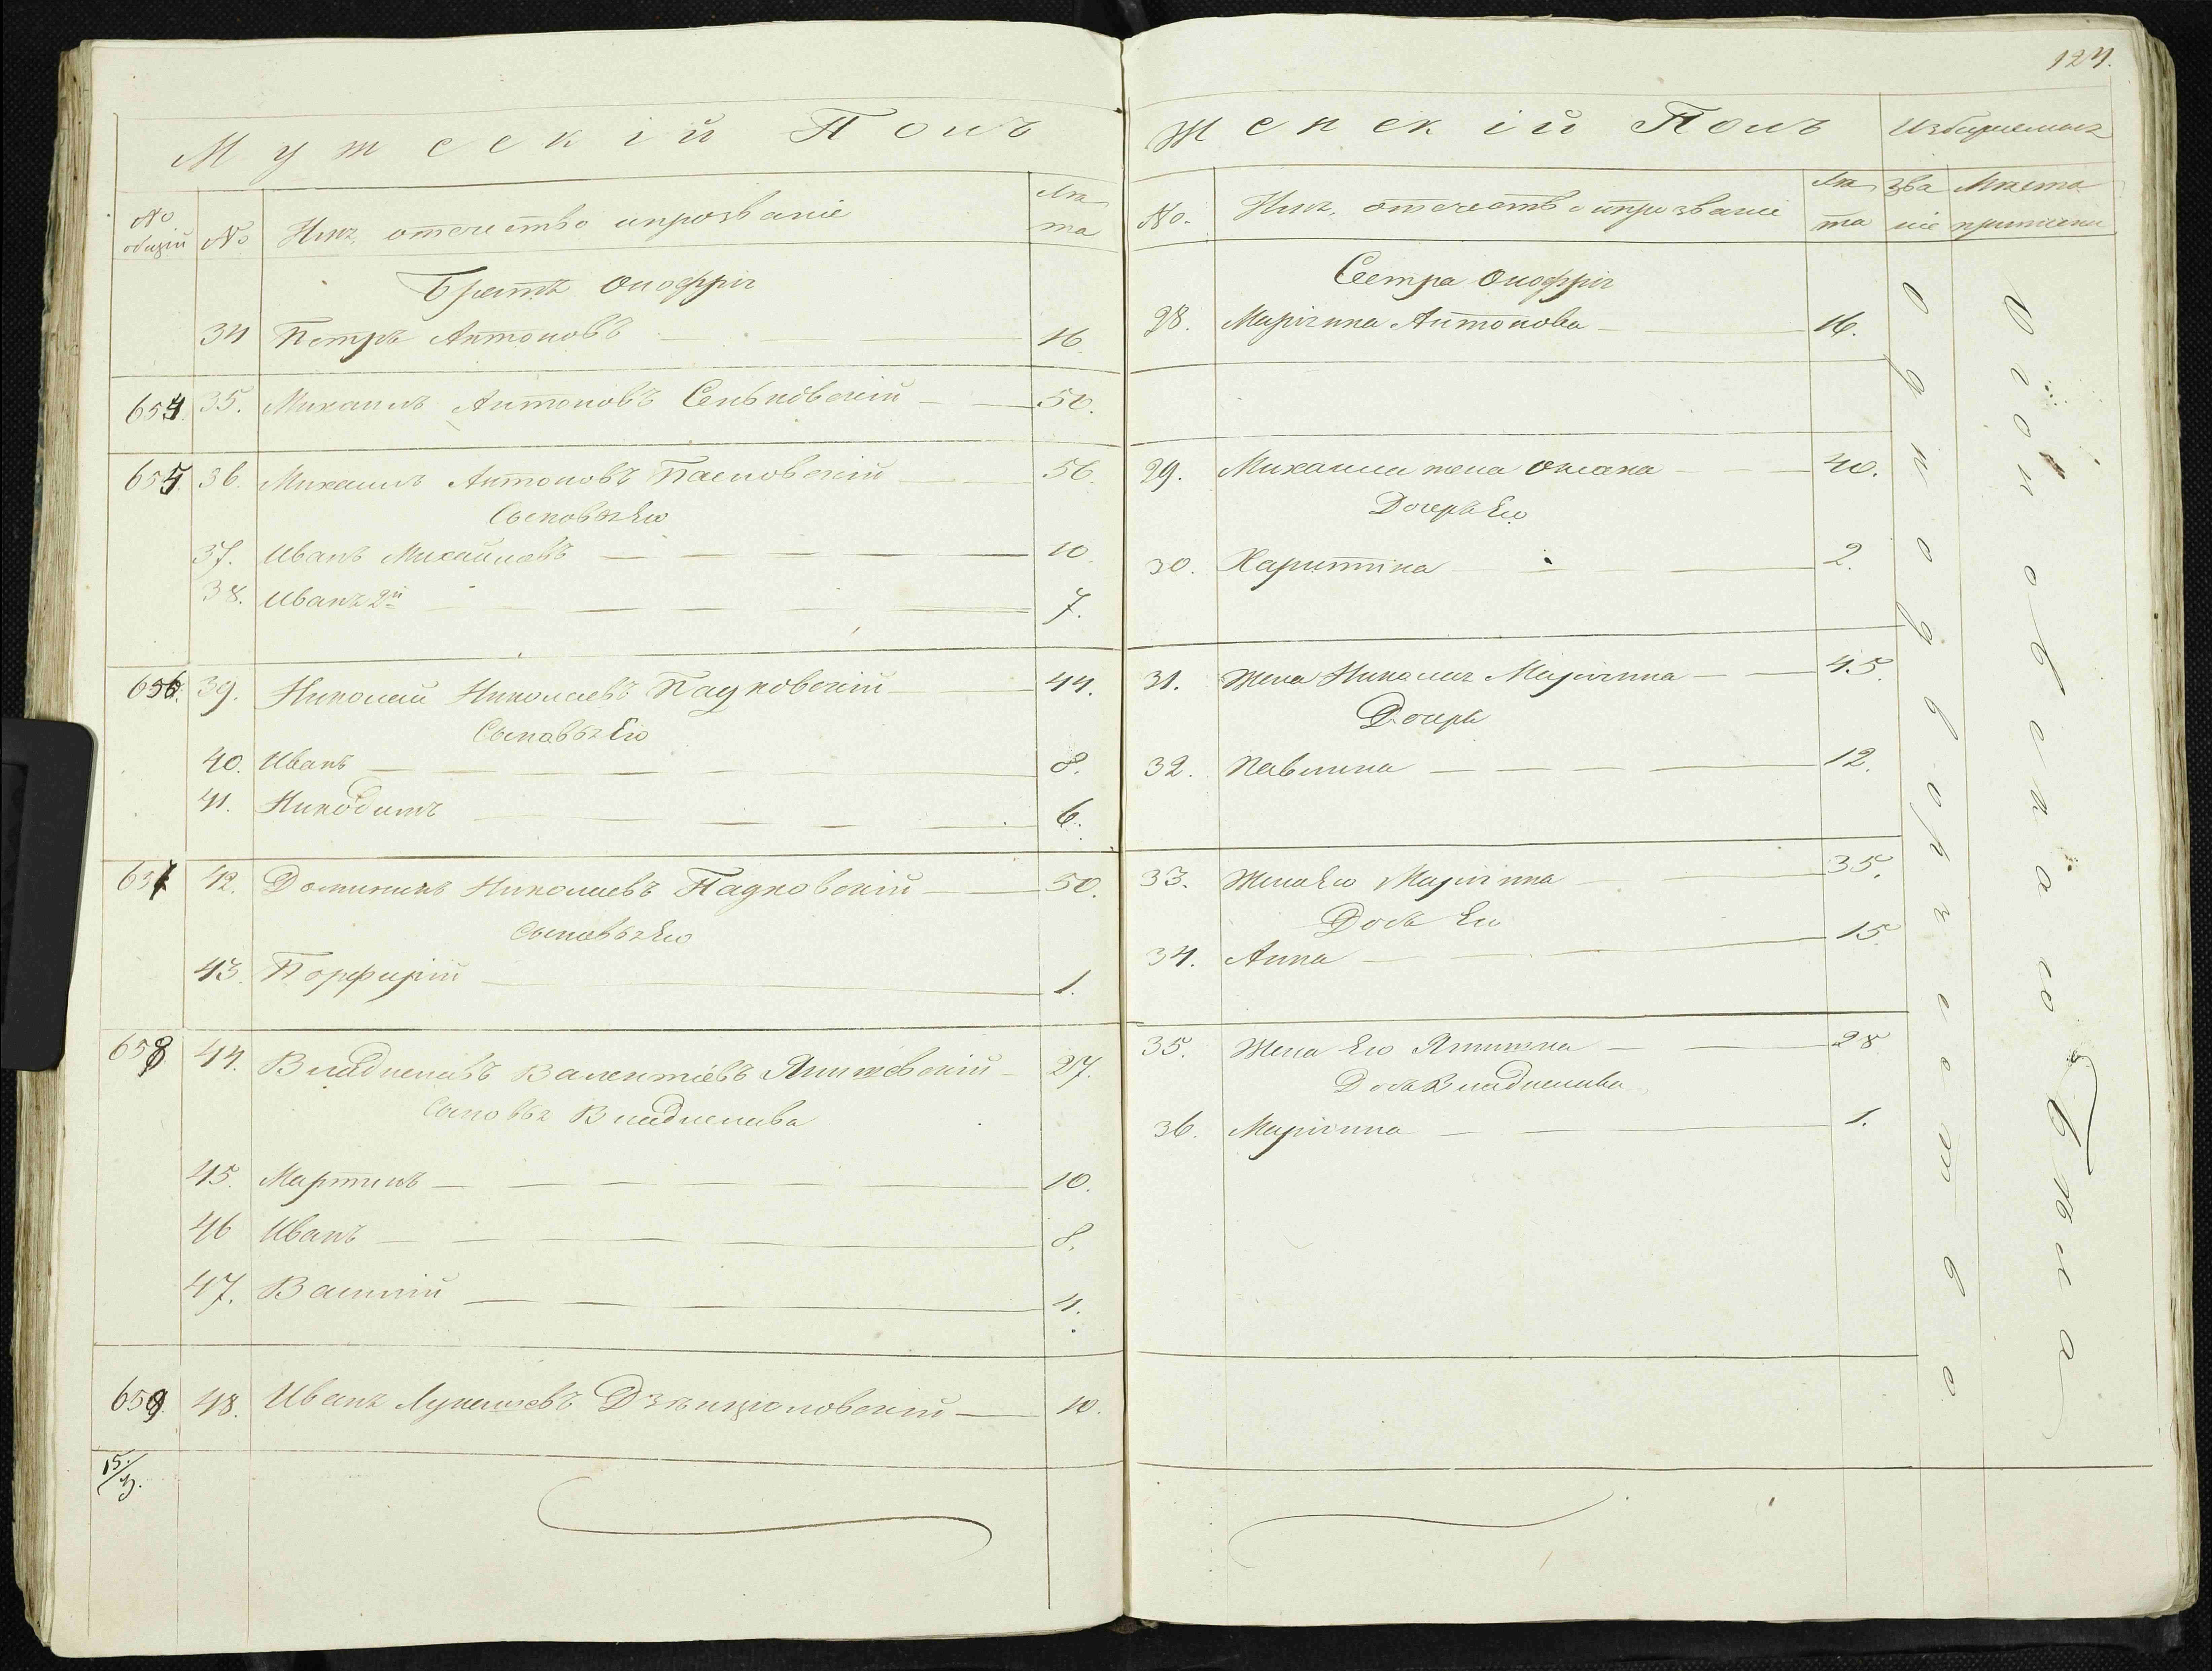 124.
Мужескій Полъ
№ общій
№
Имя, отечество и прозваніе
Лѣта
Братъ Онофрія
34 Петръ Антоновъ 16
654 35. Михаилъ Антоновъ Сеньковскій 50.
655 36. Михаилъ Антоновъ Пасновскій 56.
Сыновья Его
37. Иванъ Михайловъ 10
38. Иванъ 2й 7.
656. 39. Николай Николаевъ Падковскій 44.
Сыновья Его
40. Иванъ 8.
41. Никодимъ 6.
657 42. Доминикъ Николаевъ Падковскій 50.
Сыновья Его
43. Порфирій 1.
658 44. Владиславъ Валентіевъ Янишевскій 27.
Сыновья Владислава
45. Мартинъ 10.
46 Иванъ 8.
47. Василій 4.
659 48. Иванъ Лукашевъ 10.
15/
Женскій Полъ
Избираемыя
№.
Имя, отечество и прозваніе
Лѣта
званіе
Мѣста приписки
Сестра Онофрія
28. Маріанна Антонова 16.
29. Михаила жена 40.
Дочерь Его
30. Харитина 2.
31. Жена Николая Маріанна 45.
Дочерь
32. Павлина 12.
33. Жена Его Маріанна 35.
Дочь Его
34. Анна 15
35. Жена Его 28
Дочь Владислава
36. Маріанна 1.
однодворчество